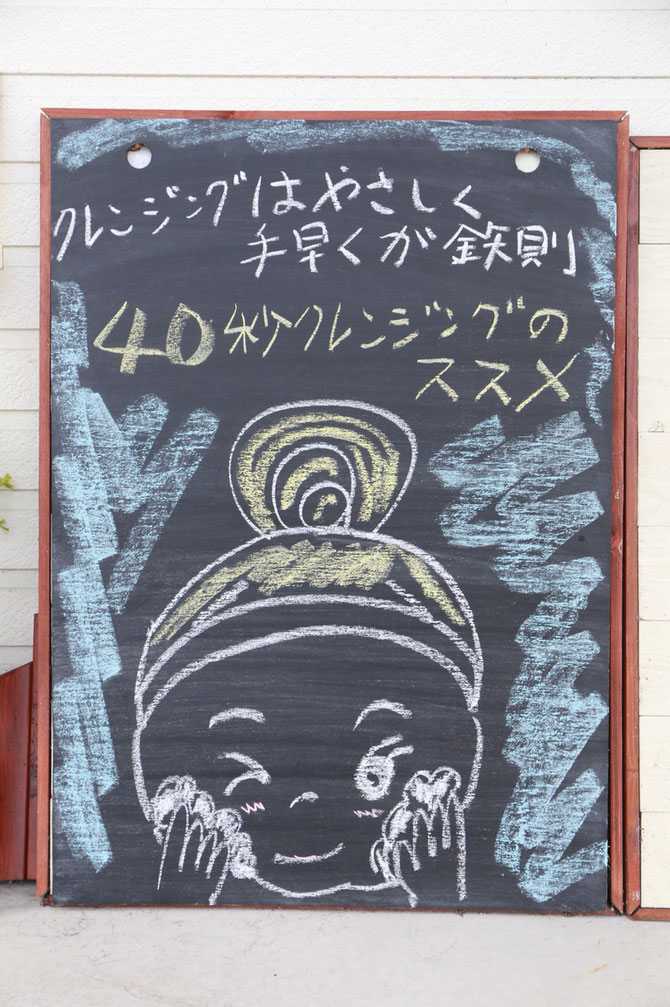 クレンジングはやさしく
手早くが鉄則
40秒クレンジングの
ススメ